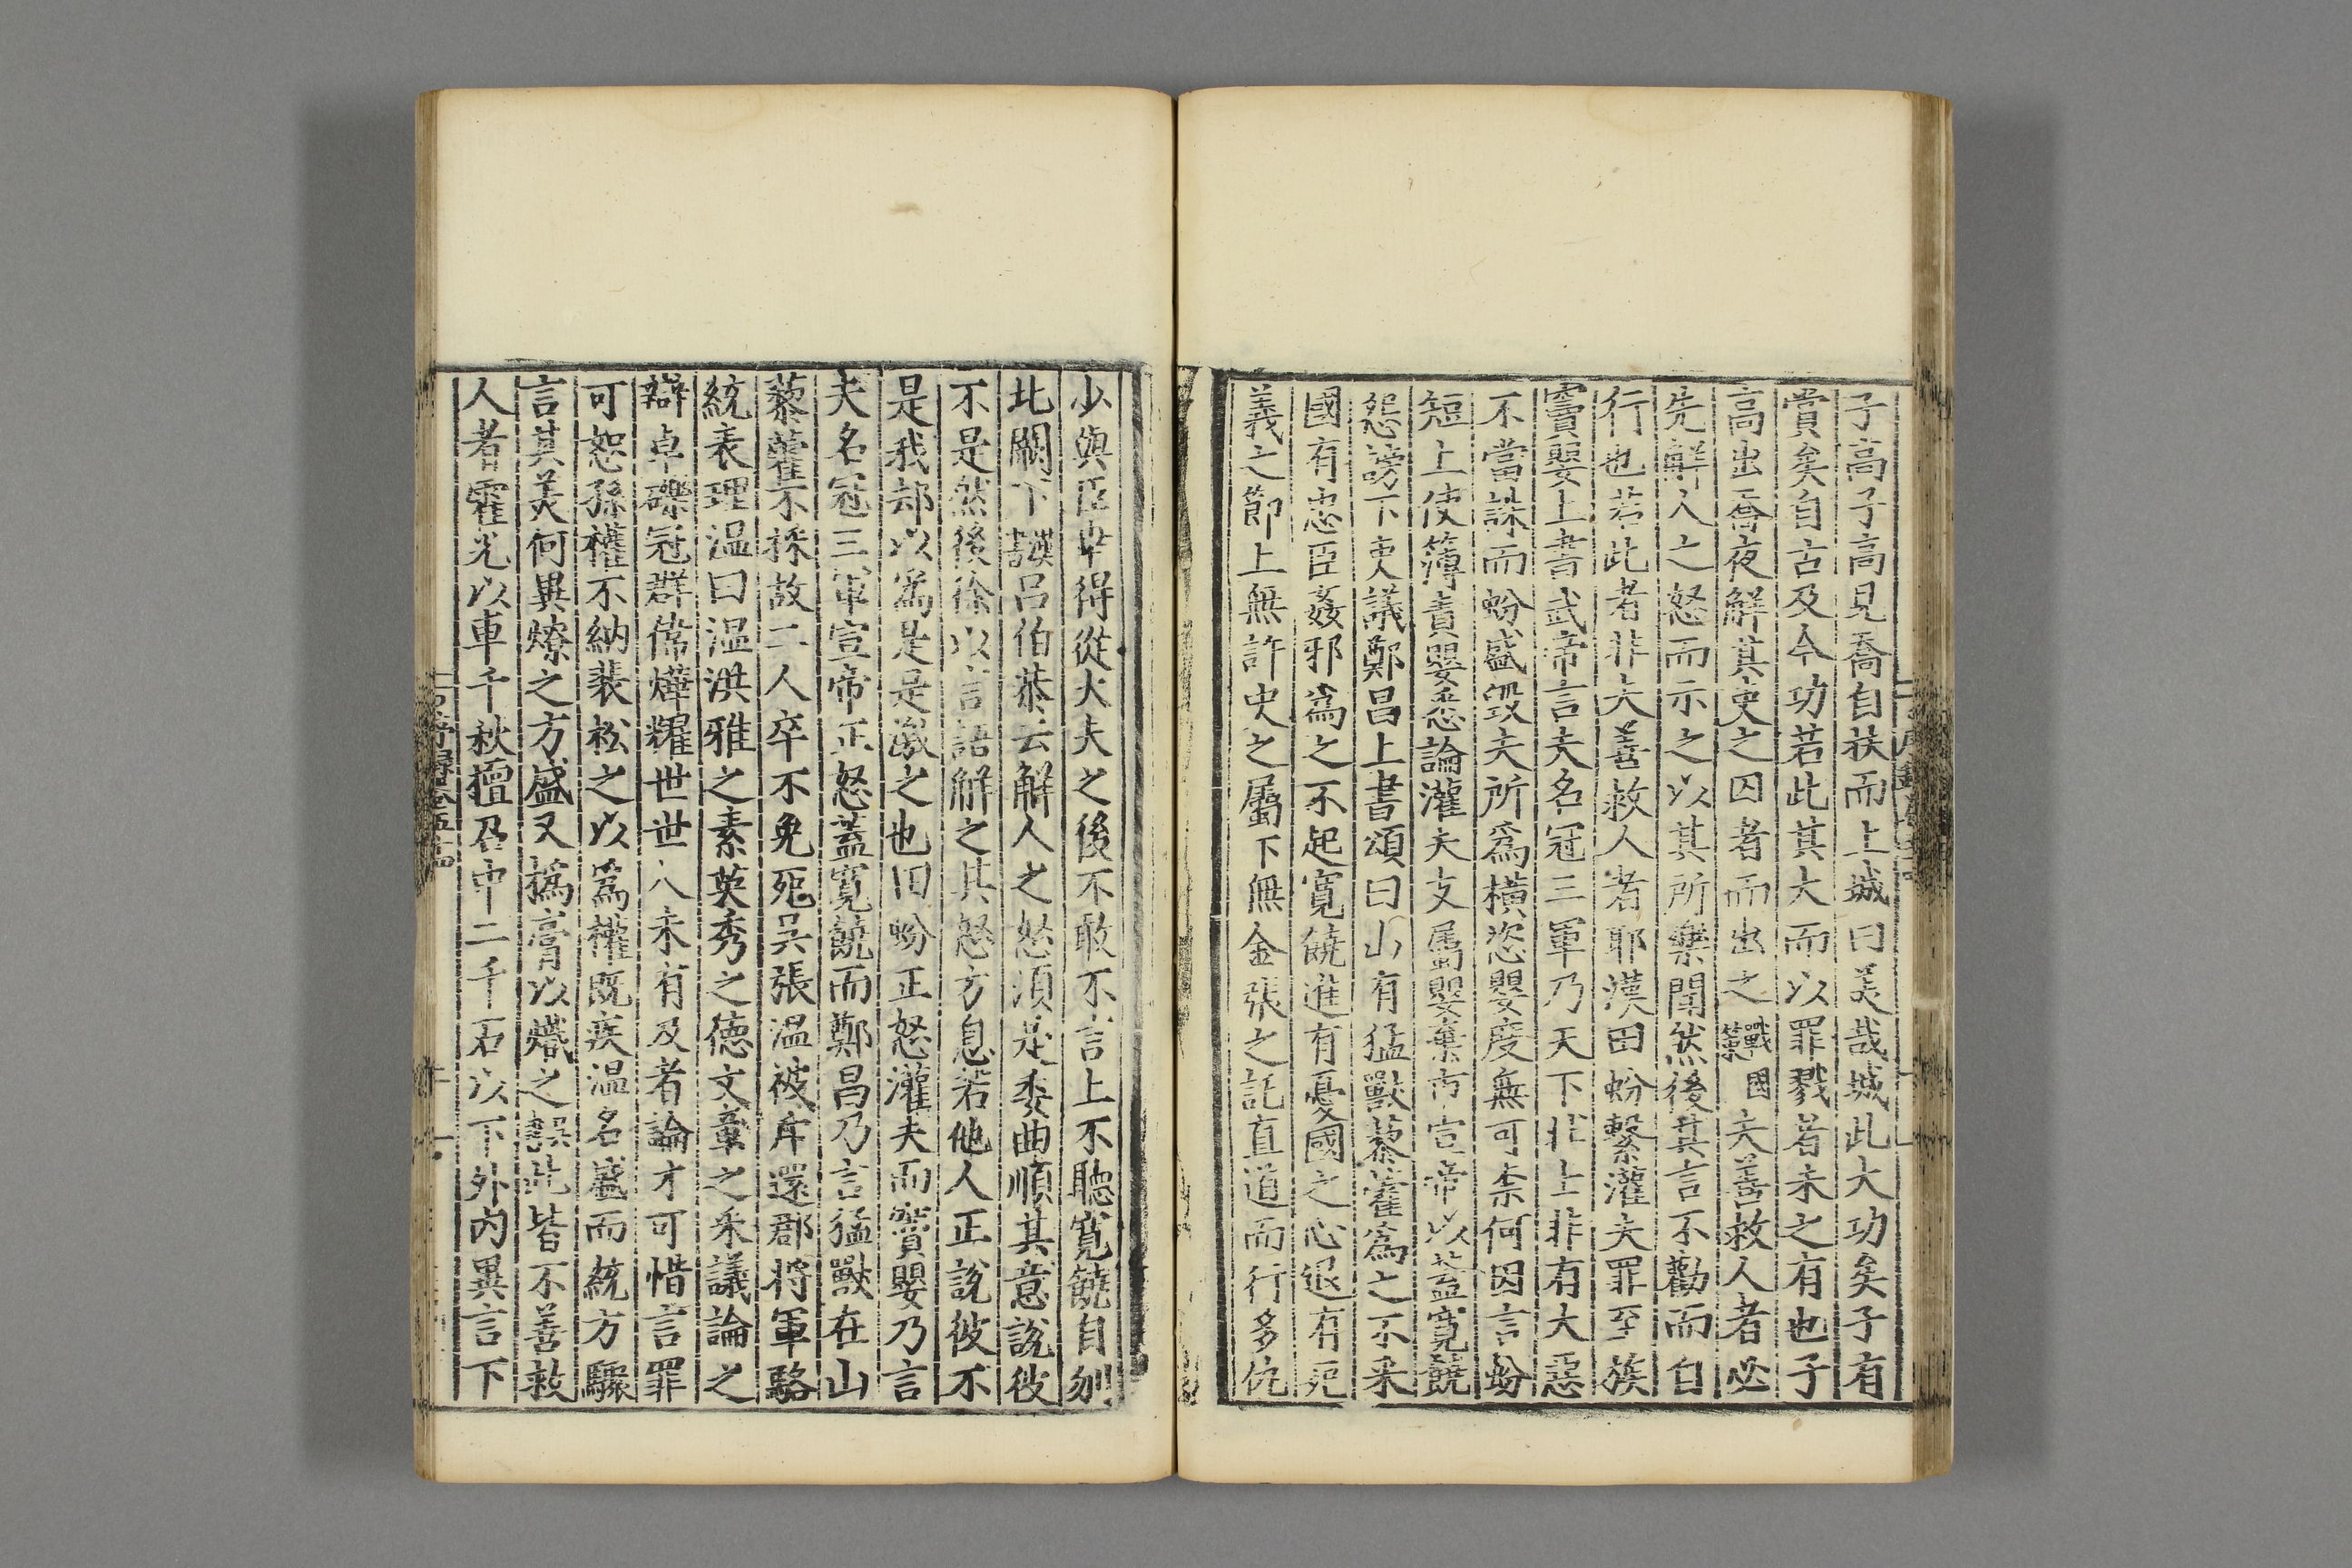 子高子高見喬自扶而上城曰美哉城此大功矣子有
賞矣自古及今功若此其大而以罪戮者未之有也子
高出喬夜解其吏之囚者而出之戰國策夫善救人者必
先解人之怒而示之以其所樂聞然後其言不勸而自
行也若此者非夫善救人者耶漢田蚡繫灌夫罪至族
竇嬰上書武帝言夫名冠三軍乃天下壯士非有大惡
不當誅而蚡盛毀夫所爲橫恣嬰度無可柰何因言蚡
短上使簿責嬰悉論灌夫支屬嬰棄市宣帝以蓋寬饒
怨謗下吏議鄭昌上書頌曰山有猛獸藜藿爲之不采
國有忠臣姦邪爲之不起寬饒進有憂國之心退有死
義之節上無許史之屬下無金張之託直道而行多仇
少與臣幸得從大夫之後不敢不言上不聽寬饒自刎
北闕下謨呂伯恭云解人之怒須是委曲順其意說彼
不是然後徐以言語解之其怒方息若他人正說彼不
是我却以爲是是激之也田蚡正怒灌夫而竇嬰乃言
夫名冠三軍宣帝正怒蓋寬饒而鄭昌乃言猛獸在山
藜藿不採故二人卒不免死吳張溫被斥還郡將軍駱
統表理温曰温洪雅之素英秀之德文章之采議論之
辯卓礫冠群偉燁耀世世人未有及者論才可惜言罪
可恕孫權不納裴松之以爲權既疾温名盛而統方驟
言其美何異燎之方盛又撝膏以熾之誤此皆不善救
人者霍光以車千秋擅召中二千石以下外內異言下